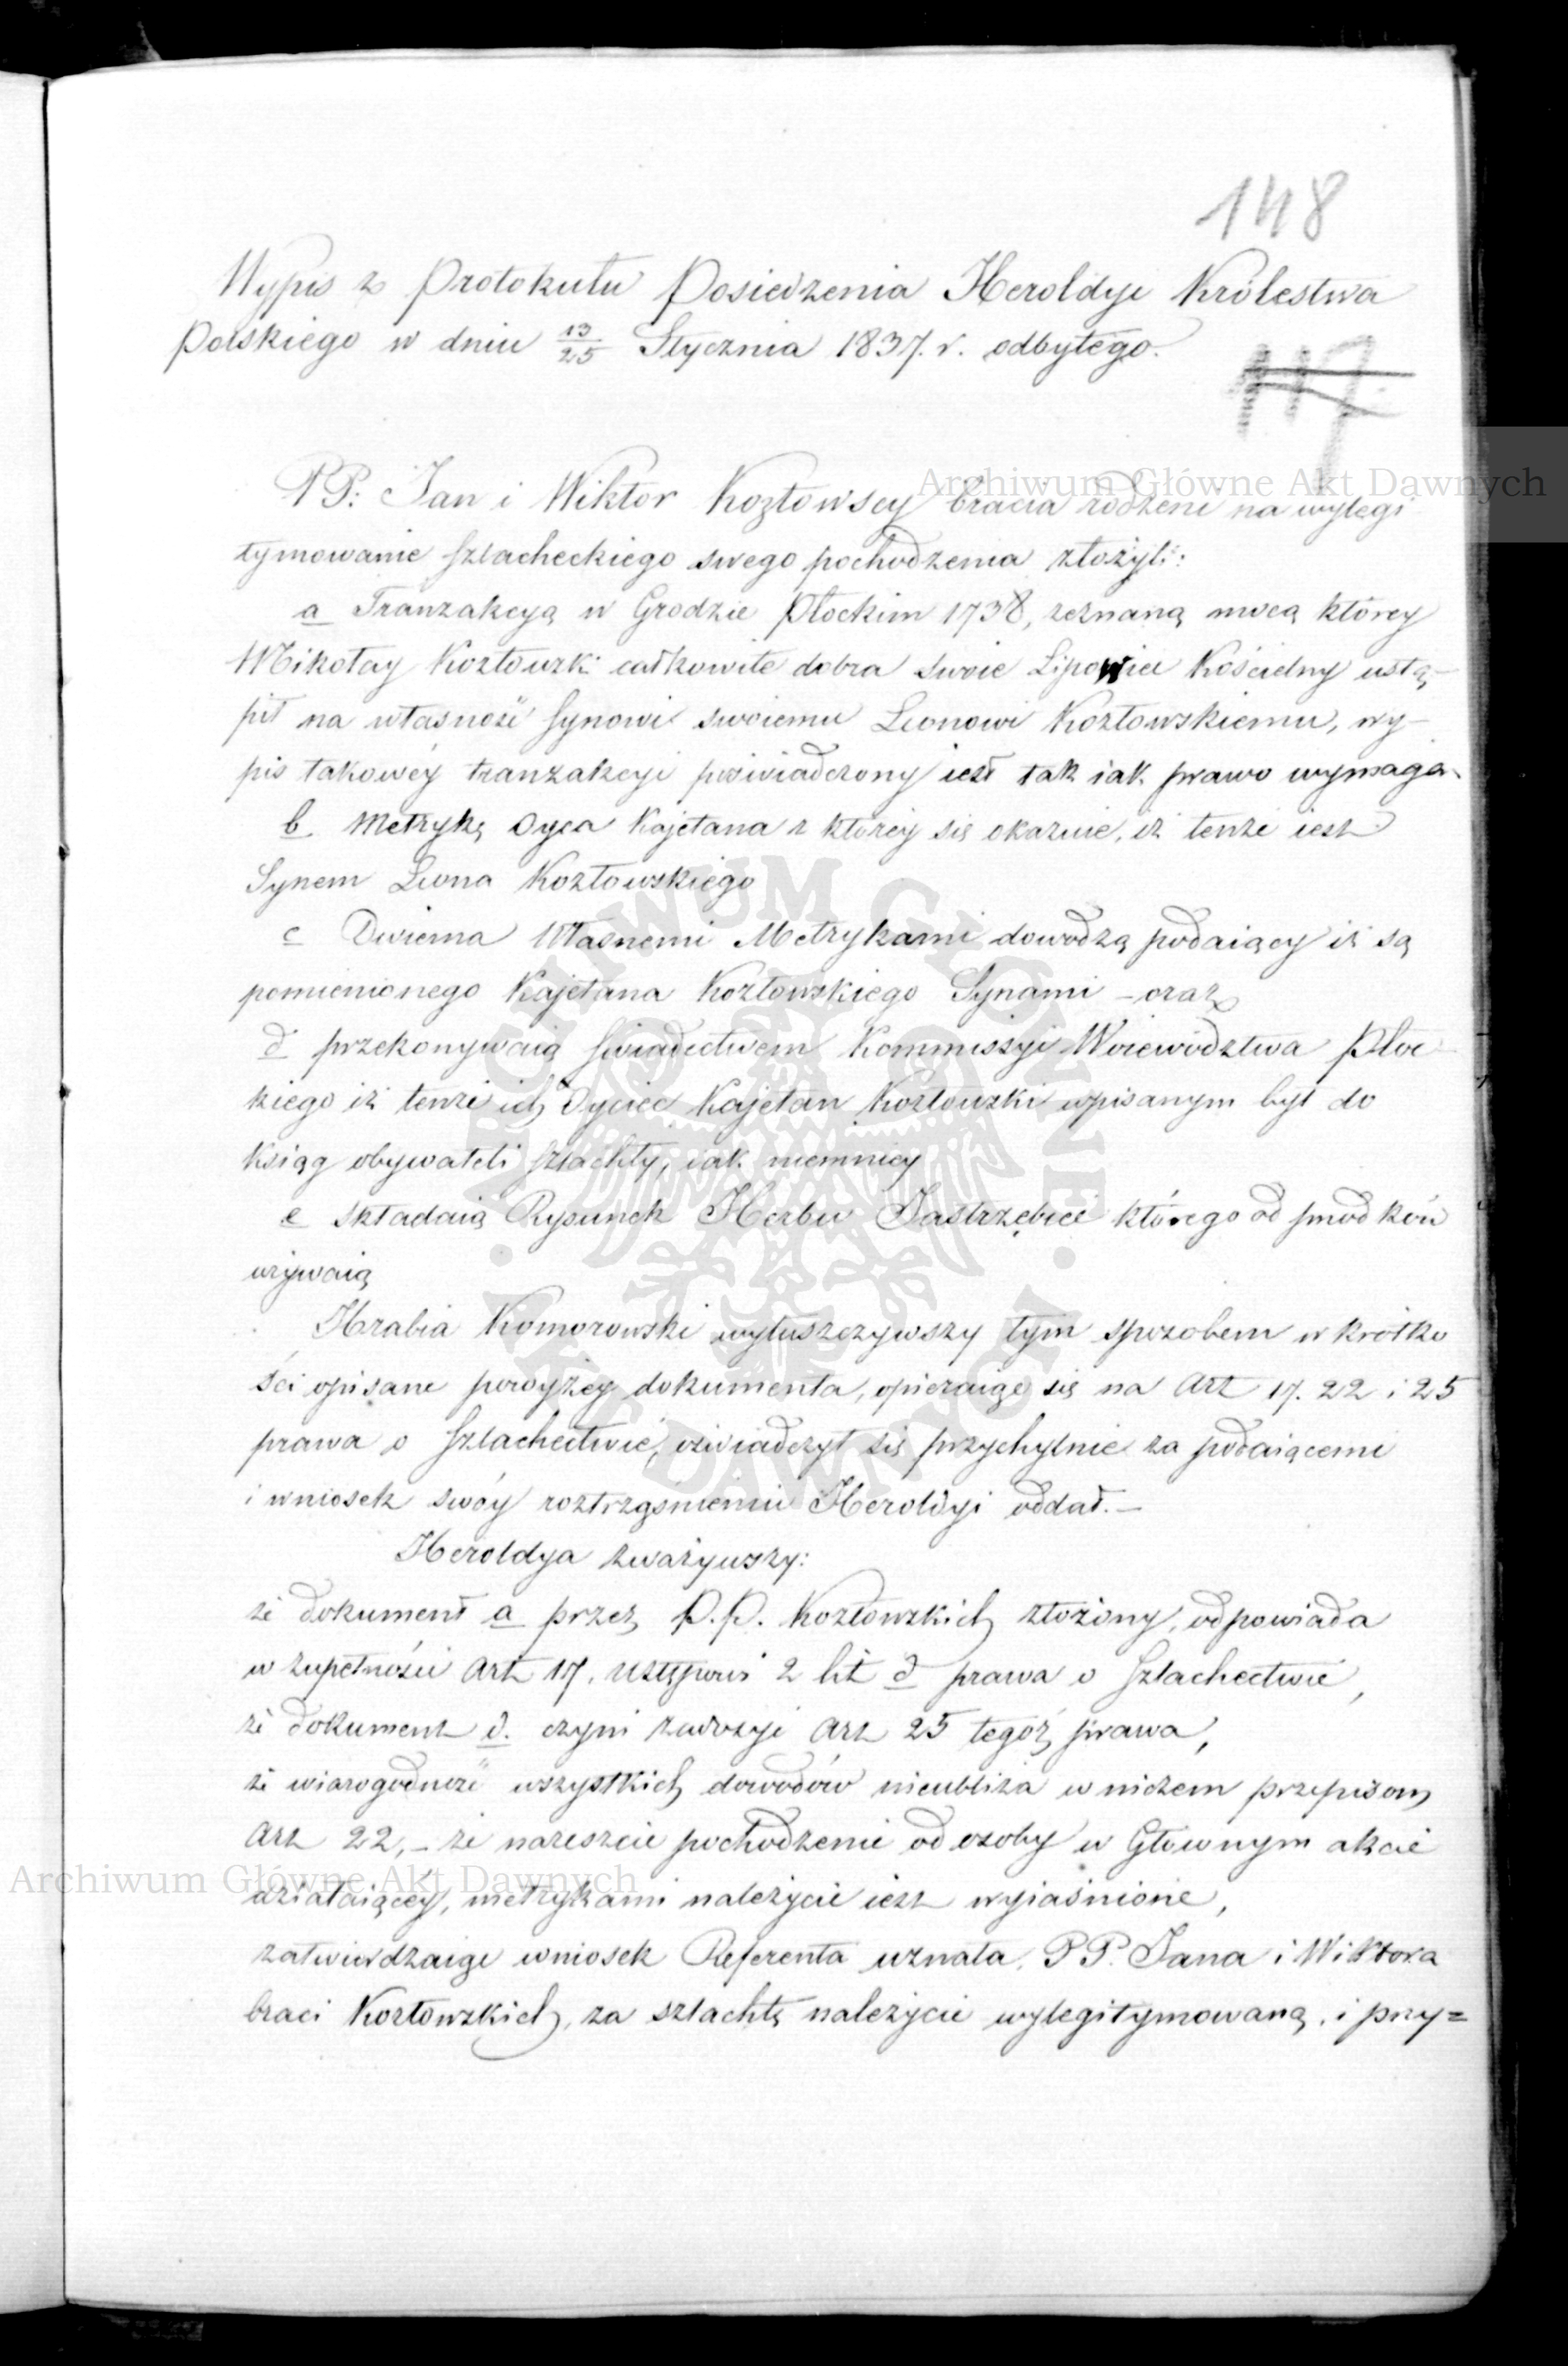 148
Wypis z Protokułu Posiedzenia Heroldyi Królestwa
Polskiego w dniu 13/25 Stycznia 1837. r. odbytego.
117
PP: Jan i Wiktor Kozłowscy bracia rodzeni na wylegi
tymowanie szlacheckiego swego pochodzenia złożyli:
a Tranzakcyą w Grodzie Płockim 1738, zeznaną mocą którey
Mikołay Kozłowski całkowite dobra swoie Lipowiec Kościelny ustą-
pił na własność synowi swoiemu Leonowi Kozłowskiemu, wy-
pis takowéy tranzakcyi poświadczony iest tak iak prawo wymaga.
b Metrykę Oyca Kajetana z któréy się okazuie, iż tenże iest
Synem Leona Kozłowskiego
c Dwiema Własnemi Metrykami dowodzą podaiący iż są
pomienionego Kajetana Kozłowskiego Synami - oraz
d przekonywaią świadectwem Kommissyi Woiewództwa Płoc
kiego iż tenże ich Oyciec Kajetan Kozłowski wpisanym był do
Ksiąg obywateli szlachty, iak niemniey
e składaią Rysunek Herbu Jastrzębiec którego od przodków
używaią
Hrabia Komorowski wyłuszczywszy tym sposobem w krótko
ści opisane powyżey dokumenta, opieraiąc się na Art 17. 22 i 25
prawa o szlachectwie, oświadczył się przychylnie za podaiącemi
i wniosek swóy roztrząśnieniu Heroldyi oddał. -
Heroldya zważywszy:
że dokument a przez P.P. Kozłowskich złożony, odpowiada
w zupełności Art 17. ustępowi 2 lit d prawa o szlachectwie,
że dokument d. czyni zadosyć Art 25 tegoż prawa,
że wiarogodność wszystkich dowodów nieubliża w niczem przepisom
Art 22, - że nareszcie pochodzenie od osoby w Głównym akcie
działaiącéy, metrykami należycie iest wyiaśnione,
zatwierdzaiąc wniosek Referenta uznała, PP. Jana i Wiktora
braci Kozłowskich, za szlachtę należycie wylegitymowaną, i przy=
Archiwum Główne Akt Dawnych
Archiwum Główne Akt Dawnych
ARCHIWUM GŁÓWNE · AKT DAWNYCH ·